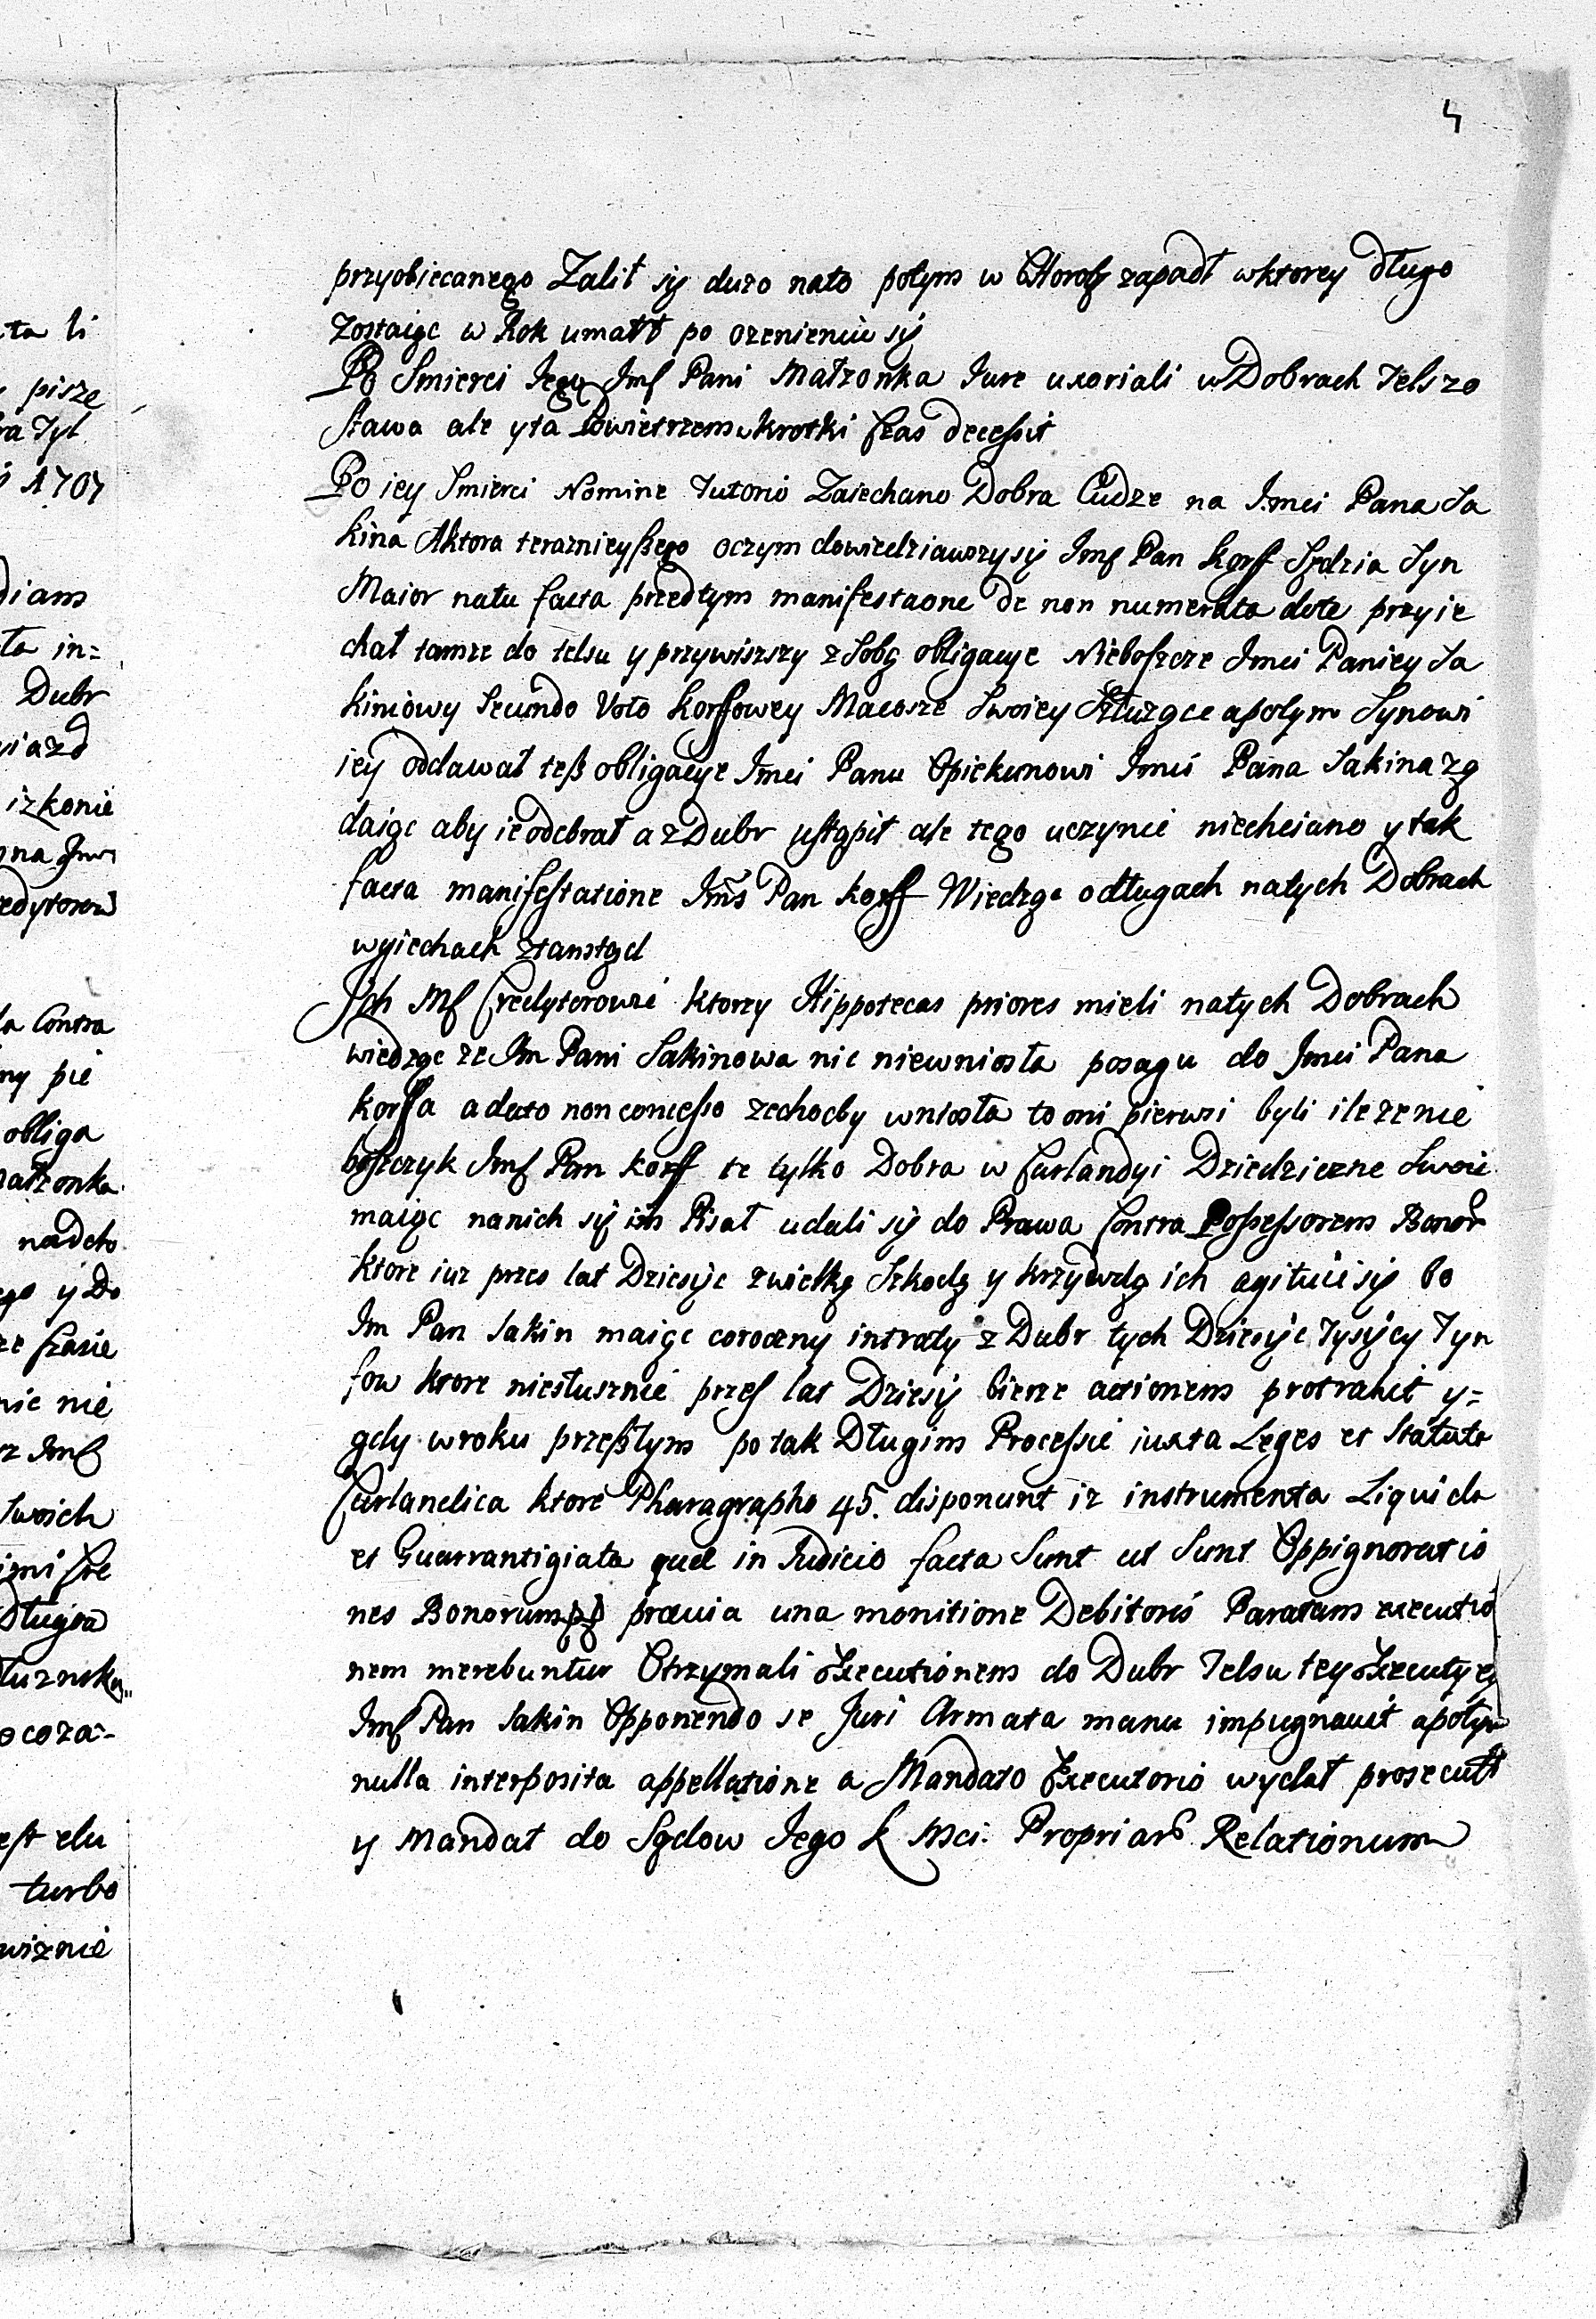 4
przyobiecanego Zalił się duzo nato potym w Chorobę zapadł wktorey długo
zostaiąc w Rok umarł po ozenieniu się
Po Smierci Iego Jmſ Pani Małzonka Iure uxoriali w Dobrach Telszo
stawa ale yta Powietrzem wkrotki Czas decessit
Po iey Smierci Nomine Tutorio Zaiechano Dobra Cudze na Jmci Pana Sa
kina Aktora teraznieyßego oczym dowiedziawszy się Jmſ Pan Korff Sędzia Syn
Maior natu facta przedtym manifestaone de non numerata dote przyie
chał tamze do telsu y przywiszszy z Sobą obligacye Nieboszcze Jmci Paniey Sa
kiniowy Secundo Voto Korffowey Macosze Swoiey Służące apotym Synowi
iey oddawał teß obligacye Jmci Panu Opiekunowi Jmći Pana Sakina zą
daiąc aby ie odebrał a z Dubr ustąpił ale tego uczynić niechciano y tak
facta manifestatione Jmś Pan Korff Wiedzą o długach natych Dobrach
wyiechach ztamtąd
Ich Mſ Credytorowie ktorzy Hippotecas priores mieli natych Dobrach
wiedząc ze Jm Pani Sakinowa nic niewniosła posagu do Jmci Pana
Korffa a dato non concesso zechocby wniosła to oni pierwsi byli ile ze nie
boszczyk Jmſ Pan Korff te tylko Dobra w Curlandyi Dziedziczne Swoie
maiąc nanich się im Pisał udali się do Prawa Contra Possessorem Bonor
ktore iuz przes lat Dziesięc zwielką Szkodą y krzywdą ich agituie się bo
Jm Pan Sakin maiąc coroczny intraty z Dubr tych Dziesięc Tysięcy Tyn
fow ktore niesłusznie przeſ lat Dziesię bierze actionem protrahit y=
gdy wroku przeßłym po tak Długim Processie iuxta Leges et Statuta
Curlandica ktore Pharagrapho 45. disponunt iz instrumenta Liquida
et Guarrantigiata quæ in Iudicio facta Sunt ut Sunt Oppignoratio
nes Bonorum prævia una monitione Debitoris Paratam executio
nem merebuntur Otrzymali Executionem do Dubr Telsu tey Executyey
Jmſ Pan Sakin Opponendo se Juri Armata manu impugnavit apotym
nulla interposita appellatione a Mandato Executorio wydał prosecutt
y Mandat do Sądow Iego K Mci. Propriar Relationum